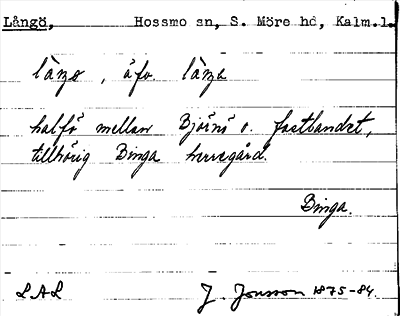 Långö, Hossmo sn, S. Möre hd, Kalm.l.
làŋø, äfv. làŋa
halfö mellan Björnö o. fastlandet,
tillhörig Binga herregård.
Binga.
LAL J. Jonsson 1875-84.